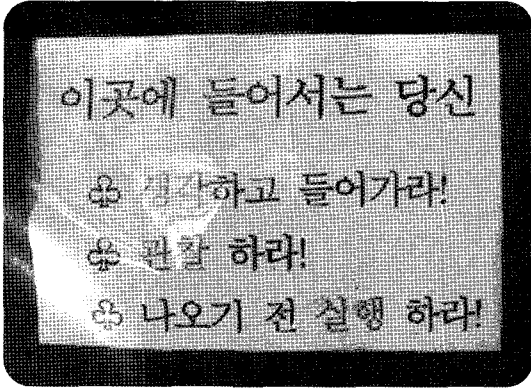 이곳에 들어서는 당신
♧ 생각하고 들어가라!
♧ 관찰 하라!
♧ 나오기 전 실행 하라!